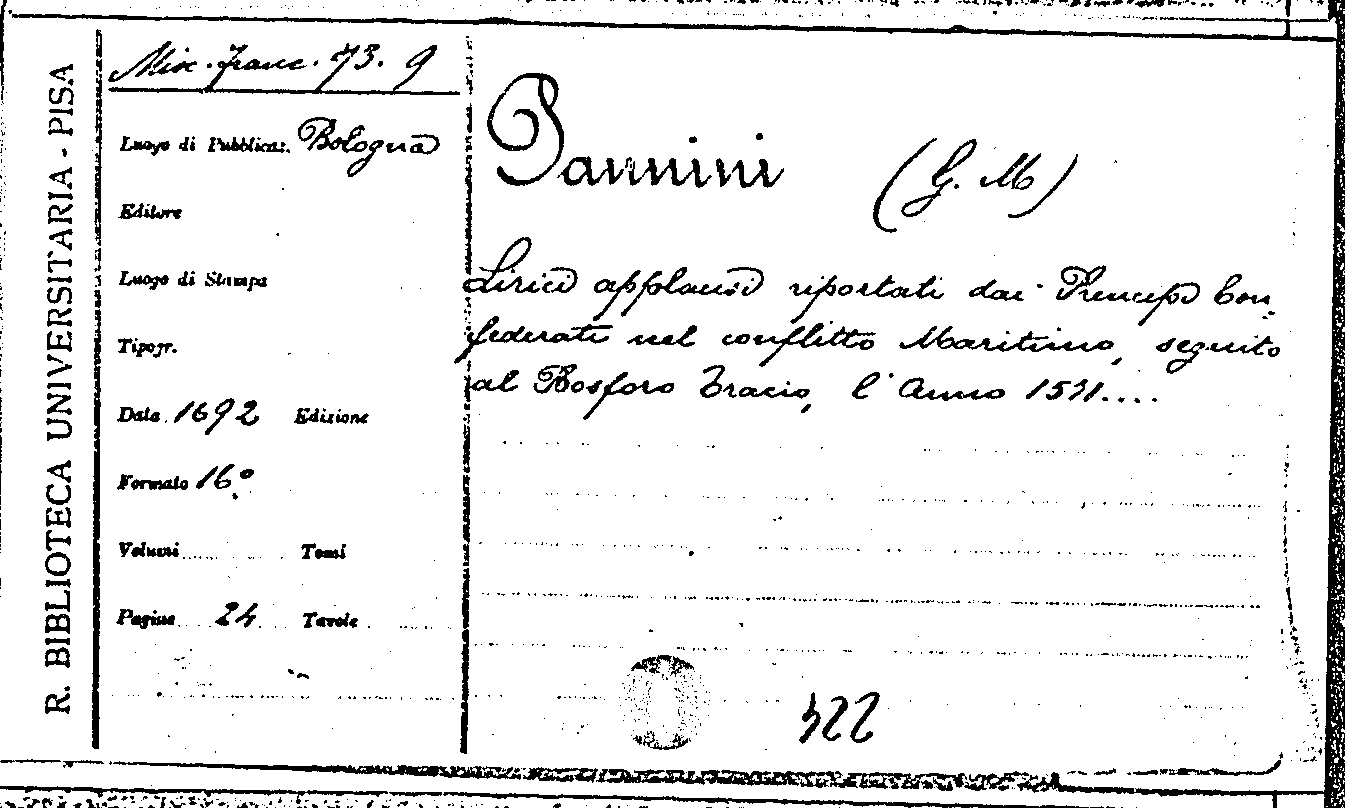 R. BIBLIOTECA UNIVERSITARIA - PISA
Misc. franc. 73. 9
Luogo di Pubblicaz. Bologna
Editore
Luogo di Stampa
Tipogr.
Data 1692 Edizione
Formato 16º
Volumi Tomi
Pagine 24 Tavole
Pannini (G. M)
Lirici applausi riportati dai Prencipi Con
federati nel conflitto Maritimo, seguito
al Bosforo Tracio, l'Anno 1571....
422